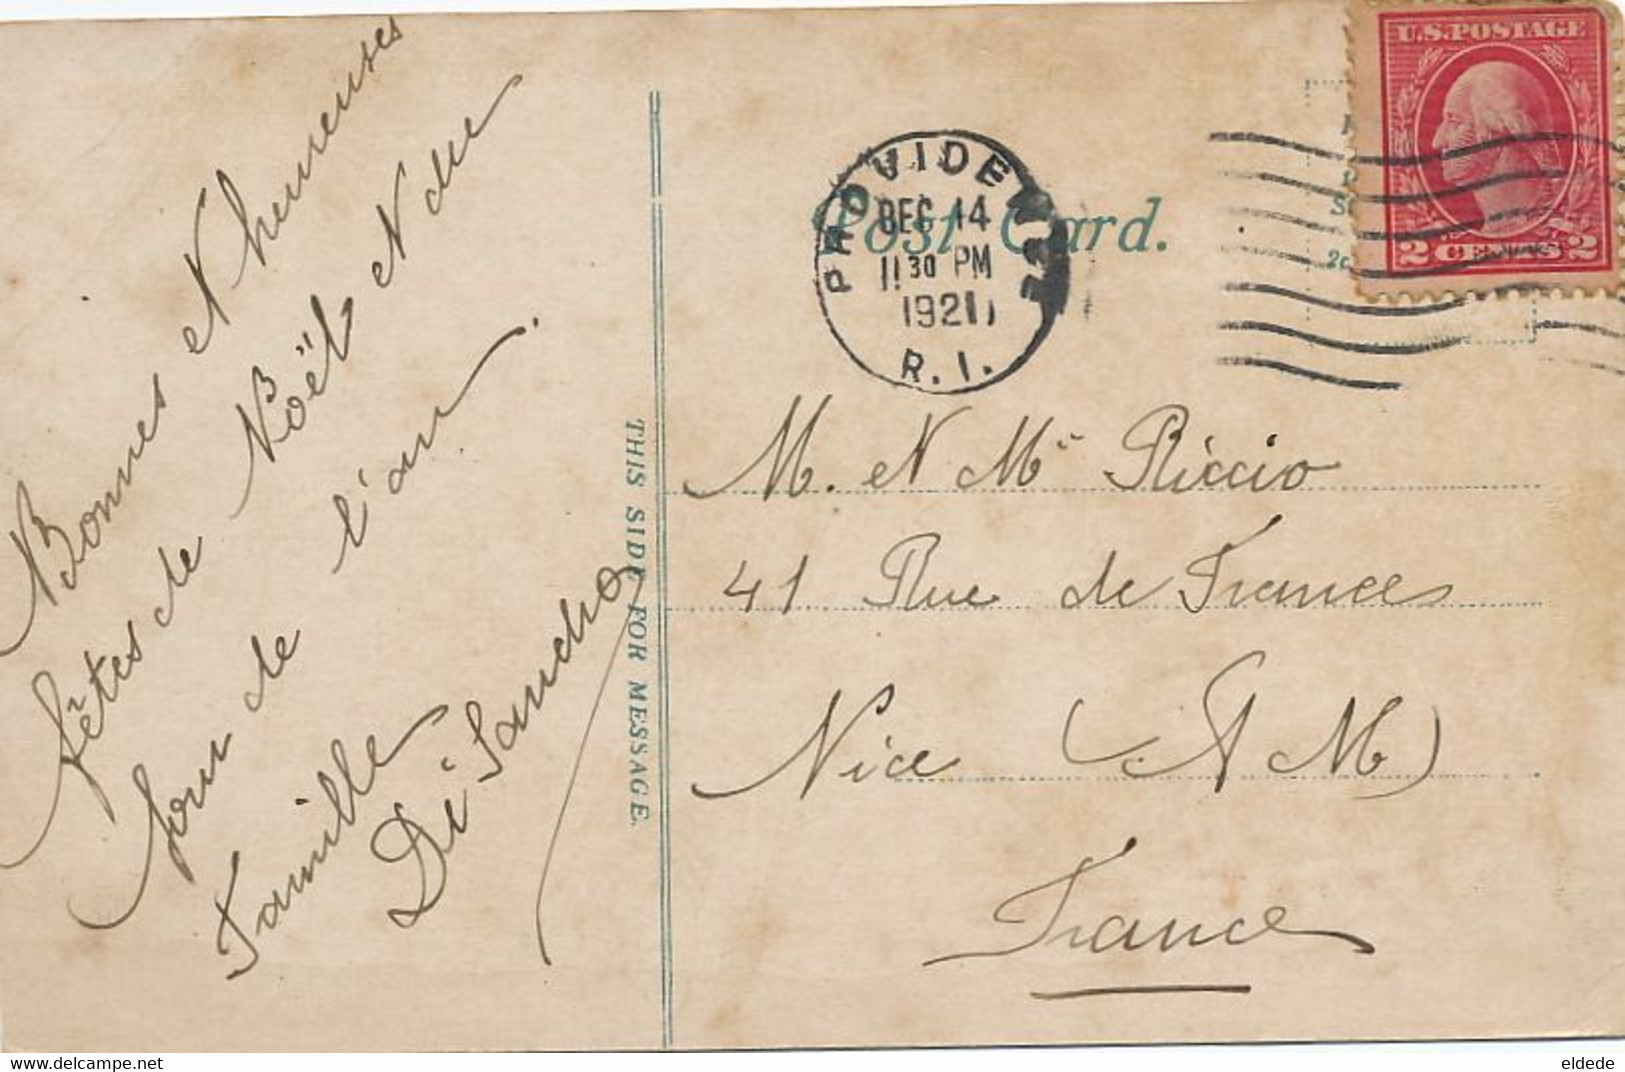 Bonnes et heureuses
fêtes de Noël et du
jour de l'an.
Famille
Di Sancho
THIS SIDE FOR MESSAGE.
Post Card.
PROVIDEN
DEC 14
11 30 PM
1921
R. I.
U.S. POSTAGE
2 CENTS 2
M. et Me Riccio
41 Rue de Frances
Nice (A M)
France
eldede